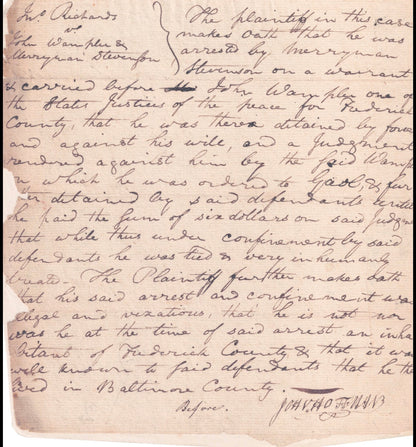 Jno Richards
vs
John Wampler &
Merryman Stevenson
The plaintiff in this case
makes oath that he was
arrested by Merryman
Stevenson on a warrant
& carried before John Wampler one of
the States Justices of the peace for Frederick
County, that he was there detained by force
and against his will, and a Judgment
rendered against him by the said Wamp
on which he was ordered to Gaol, & fur
ther detained by said defendants until
he paid the sum of six dollars on said Judgm
that while thus under confinement by said
defendants he was tied & very inhumanly
treated - The Plaintiff further makes oath
that his said arrest and confinement was
illegal and vexatious, that he is not nor
was he at the time of said arrest an inha
bitant of Frederick County & that it was
well known to said defendants that he the
lived in Baltimore County.
Before